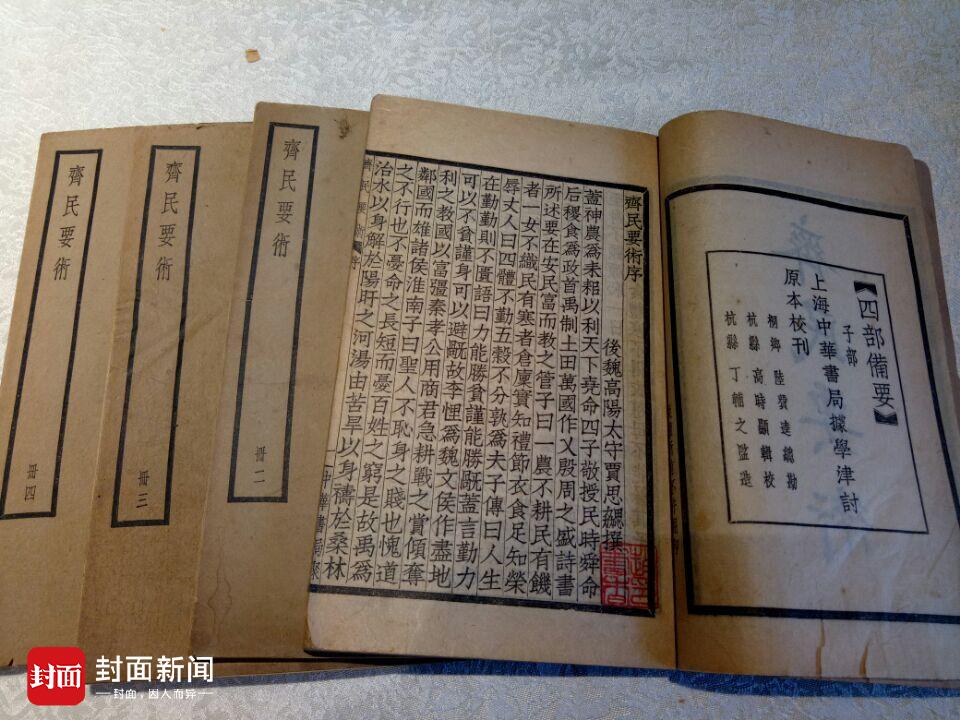 四部備要
子部
上海中華書局據學津討
原本校刊
桐鄉 陸費逵總勘
杭縣 高時顯輯校
杭縣 丁輔之監造
齊民要術序
後魏高陽太守賈思勰撰
蓋神農爲耒耜以利天下堯命四子敬授民時舜命
后稷食爲政首禹制土田萬國作乂殷周之盛詩書
所述要在安民富而教之管子曰一農不耕民有饑
者一女不織民有寒者倉廩實知禮節衣食足知榮
辱丈人曰四體不勤五穀不分孰爲夫子傳曰人生
在勤勤則不匱語曰力能勝貧謹能勝旤蓋言勤力
可以不貧謹身可以避旤故李悝爲魏文侯作盡地
利之教國以富彊秦孝公用商君急耕戰之賞傾奪
鄰國而雄諸侯淮南子曰聖人不恥身之賤也愧道
之不行也不憂命之長短而憂百姓之窮是故禹爲
治水以身解於陽盱之河湯由苦旱以身禱於桑林
齊民要術 序 一 中華書局聚
齊民要術 冊二
齊民要術 冊三
齊民要術 冊四
封面 封面新闻
封面,因人而异